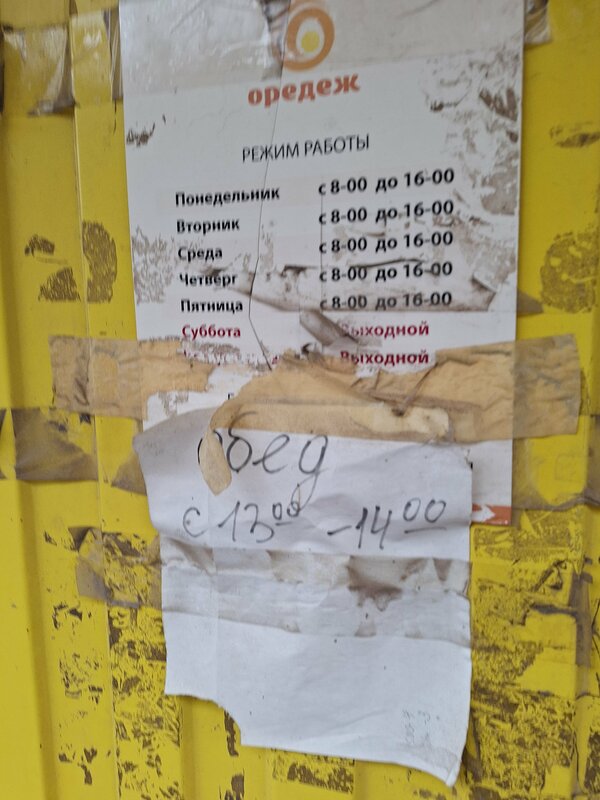 оредеж
РЕЖИМ РАБОТЫ
Понедельник с 8-00 до 16-00
Вторник с 8-00 до 16-00
Среда с 8-00 до 16-00
Четверг с 8-00 до 16-00
Пятница с 8-00 до 16-00
Суббота Выходной
Выходной
обед
с 13⁰⁰ - 14⁰⁰